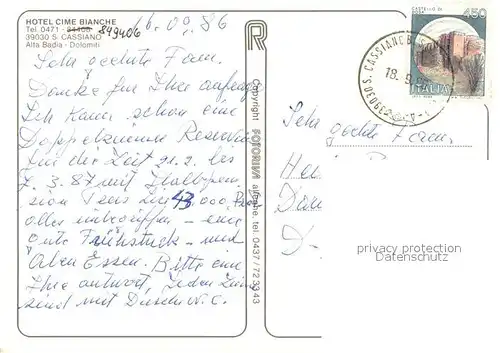 HOTEL CIME BIANCHE 16.09.86
Tel. 0471 - 84406 849406
39030 S. CASSIANO
Alta Badia - Dolomiti
Sehr geehrte Fam.
Danke für Ihre anfrage
Ich Kann schon eine
Doppelzimmer Reservie
für die Zeit 21.2. bis
7.3.87 mit Halbpen
sion Preis Lire 43.000,
alles inbegriffen - eine
gute Frühstück - und
Aben Essen. Bitte um
Ihre antwort, jeden Zimmer
sind mit Dusche W.C.
R
Copyright FOTORIVA alleghe. tel. 0437 / 723343
CASTELLO DI
450
ITALIA
39030 S. CASSIANO
18.9.
Sehr geehrte Fam.
privacy protection
Datenschutz